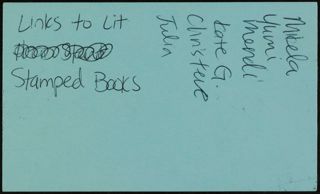 Links to Lit
Stamped Books
Micela
Yumi
Mandi
Kate G.
Christene
Julia